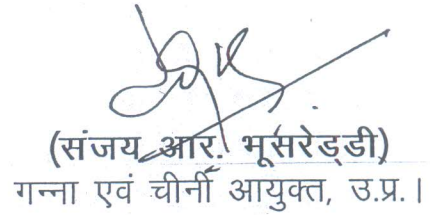 (संजय आर. भूसरेड्डी)
गन्ना एवं चीनी आयुक्त, उ.प्र.।